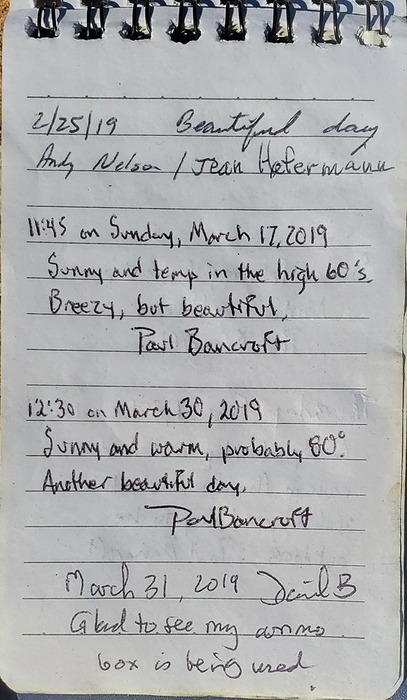 2/25/19 Beautiful day
Andy Nelson / Jean Hefermann
11:45 on Sunday, March 17, 2019
Sunny and temp in the high 60's.
Breezy, but beautiful.
Paul Bancroft
12:30 on March 30, 2019
Sunny and warm, probably 80°.
Another beautiful day.
Paul Bancroft
March 31, 2019 David B
Glad to see my ammo
box is being used